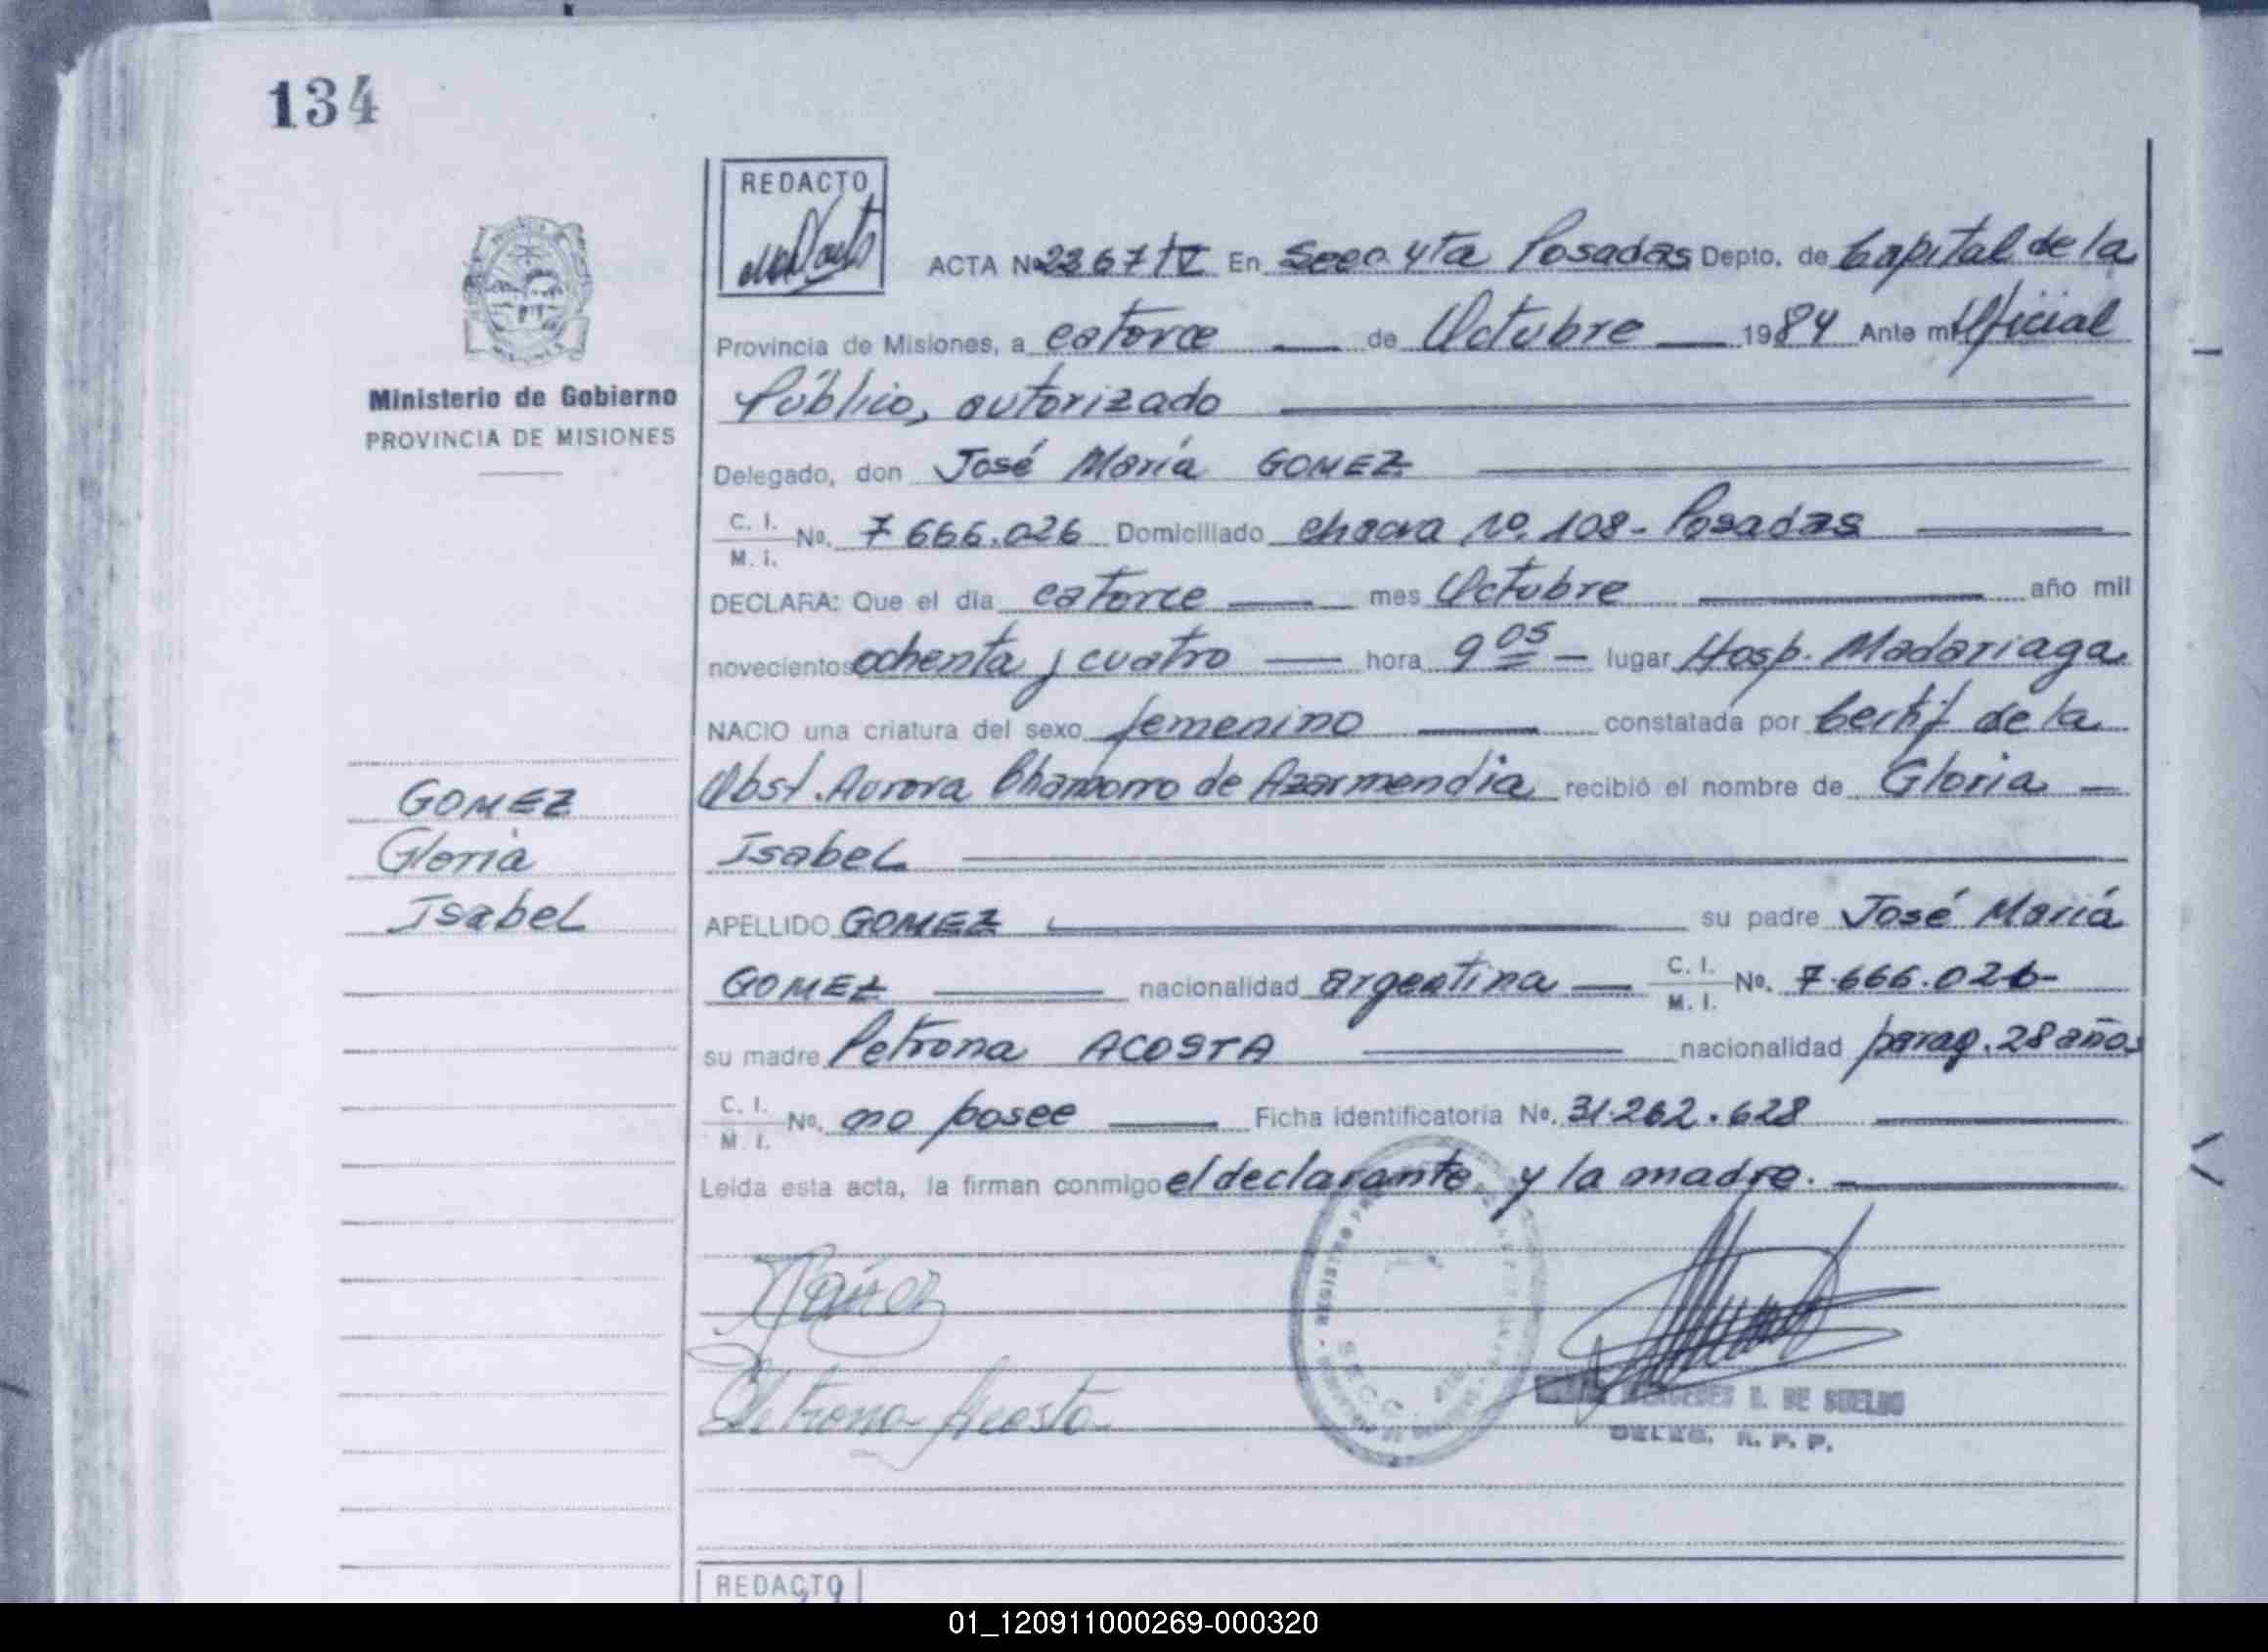 134
REDACTO
ACTA Nº 2367/IV En Secc. 4ta Posadas Depto. de Capital de la
Provincia de Misiones, a catorce de Octubre 1984 Ante mi Oficial
Público, autorizado
Ministerio de Gobierno
PROVINCIA DE MISIONES
Delegado, don José María GOMEZ
C. I. M. I. No. 7 666.026 Domiciliado chacra No. 108 - Posadas
DECLARA: Que el día catorce mes Octubre año mil
novecientos ochenta y cuatro hora 9 05 - lugar Hosp. Madariaga
NACIO una criatura del sexo femenino constatada por Certif de la
Obst. Aurora Chamorro de Azarmendia recibió el nombre de Gloria
Isabel
GOMEZ
Gloria
Isabel
APELLIDO GOMEZ su padre José María
GOMEZ nacionalidad argentina C. I. M. I. No. 7.666.026
su madre Petrona ACOSTA nacionalidad parag. 28 años
C. I. M. I. No. no posee Ficha identificatoria No. 31.262.628
Leída esta acta, la firman conmigo el declarante y la madre.
Petrona Acosta
DE SUELDO
DELEG. R. P. P.
REDACTO
01_120911000269-000320